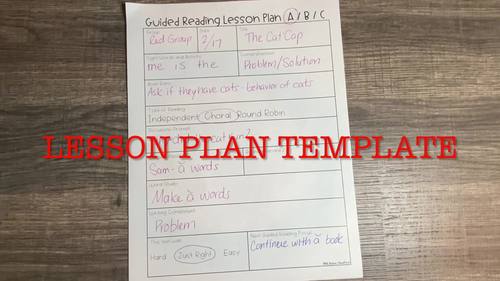 Guided Reading Lesson Plan A / B / C
Group Date Title
Red Group 2/17 The Cat Cap
Comprehension
me is the Problem/Solution
Ask if they have cats - behavior of cats
Type of Reading
Independent Choral Round Robin
LESSON PLAN TEMPLATE
Sam - ă words
Word Study
Make ă words
Problem
This Text Was: Next Guided Reading Focus:
Hard Just Right Easy Continue with ă book